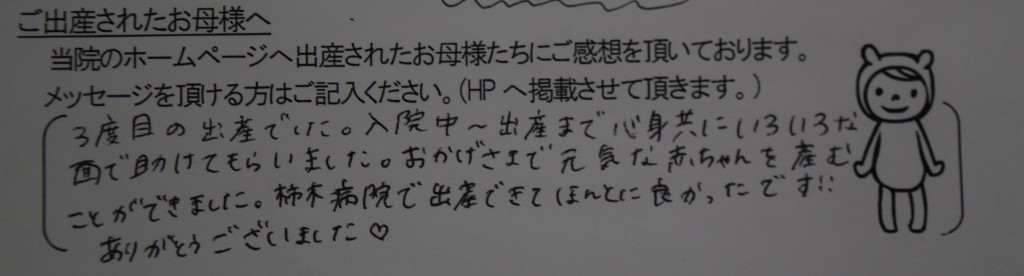 ご出産されたお母様へ
当院のホームページへ出産されたお母様たちにご感想を頂いております。
メッセージを頂ける方はご記入ください。(HPへ掲載させて頂きます。)
3度目の出産でした。入院中～出産まで心身共にいろいろな
面で助けてもらいました。おかげさまで元気な赤ちゃんを産む
ことができました。柿木病院で出産できてほんとに良かったです!!
ありがとうございました♡